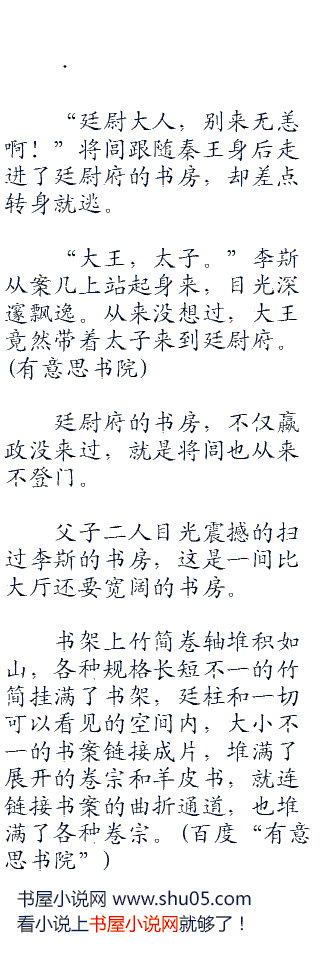 .
“廷尉大人，别来无恙
啊！”将闾跟随秦王身后走
进了廷尉府的书房，却差点
转身就逃。
“大王，太子。”李斯
从案几上站起身来，目光深
邃飘逸。从来没想过，大王
竟然带着太子来到廷尉府。
(有意思书院)
廷尉府的书房，不仅嬴
政没来过，就是将闾也从来
不登门。
父子二人目光震撼的扫
过李斯的书房，这是一间比
大厅还要宽阔的书房。
书架上竹简卷轴堆积如
山，各种规格长短不一的竹
简挂满了书架，廷柱和一切
可以看见的空间内，大小不
一的书案链接成片，堆满了
展开的卷宗和羊皮书，就连
链接书案的曲折通道，也堆
满了各种卷宗。(百度“有意
思书院”)
书屋小说网 www.shu05.com
看小说上书屋小说网就够了！